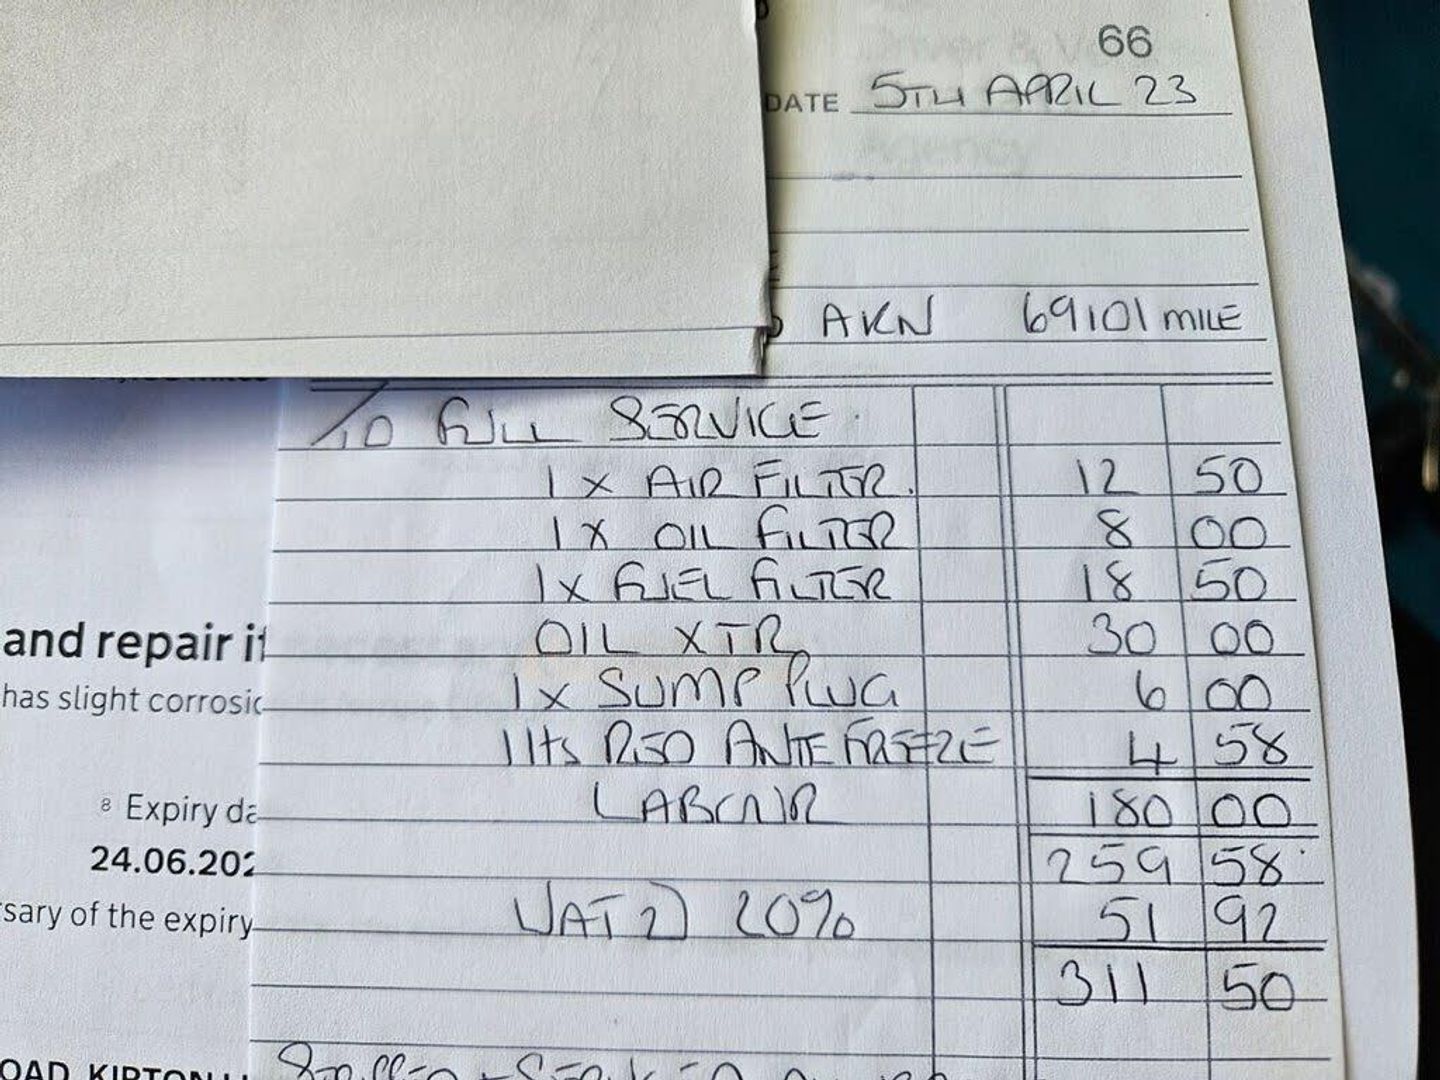 66
DATE 5TH APRIL 23
AKN 69101 MILE
T/O FULL SERVICE
1 X AIR FILTER. 12 50
1 X OIL FILTER 8 00
1 X FUEL FILTER 18 50
OIL XTR 30 00
1 X SUMP PLUG 6 00
1 lts RED ANTE FREEZE 4 58
LABOUR 180 00
259 58
VAT @ 20% 51 92
311 50
and repair if
has slight corrosic
8 Expiry da
24.06.202
sary of the expiry
OAD, KIRTON